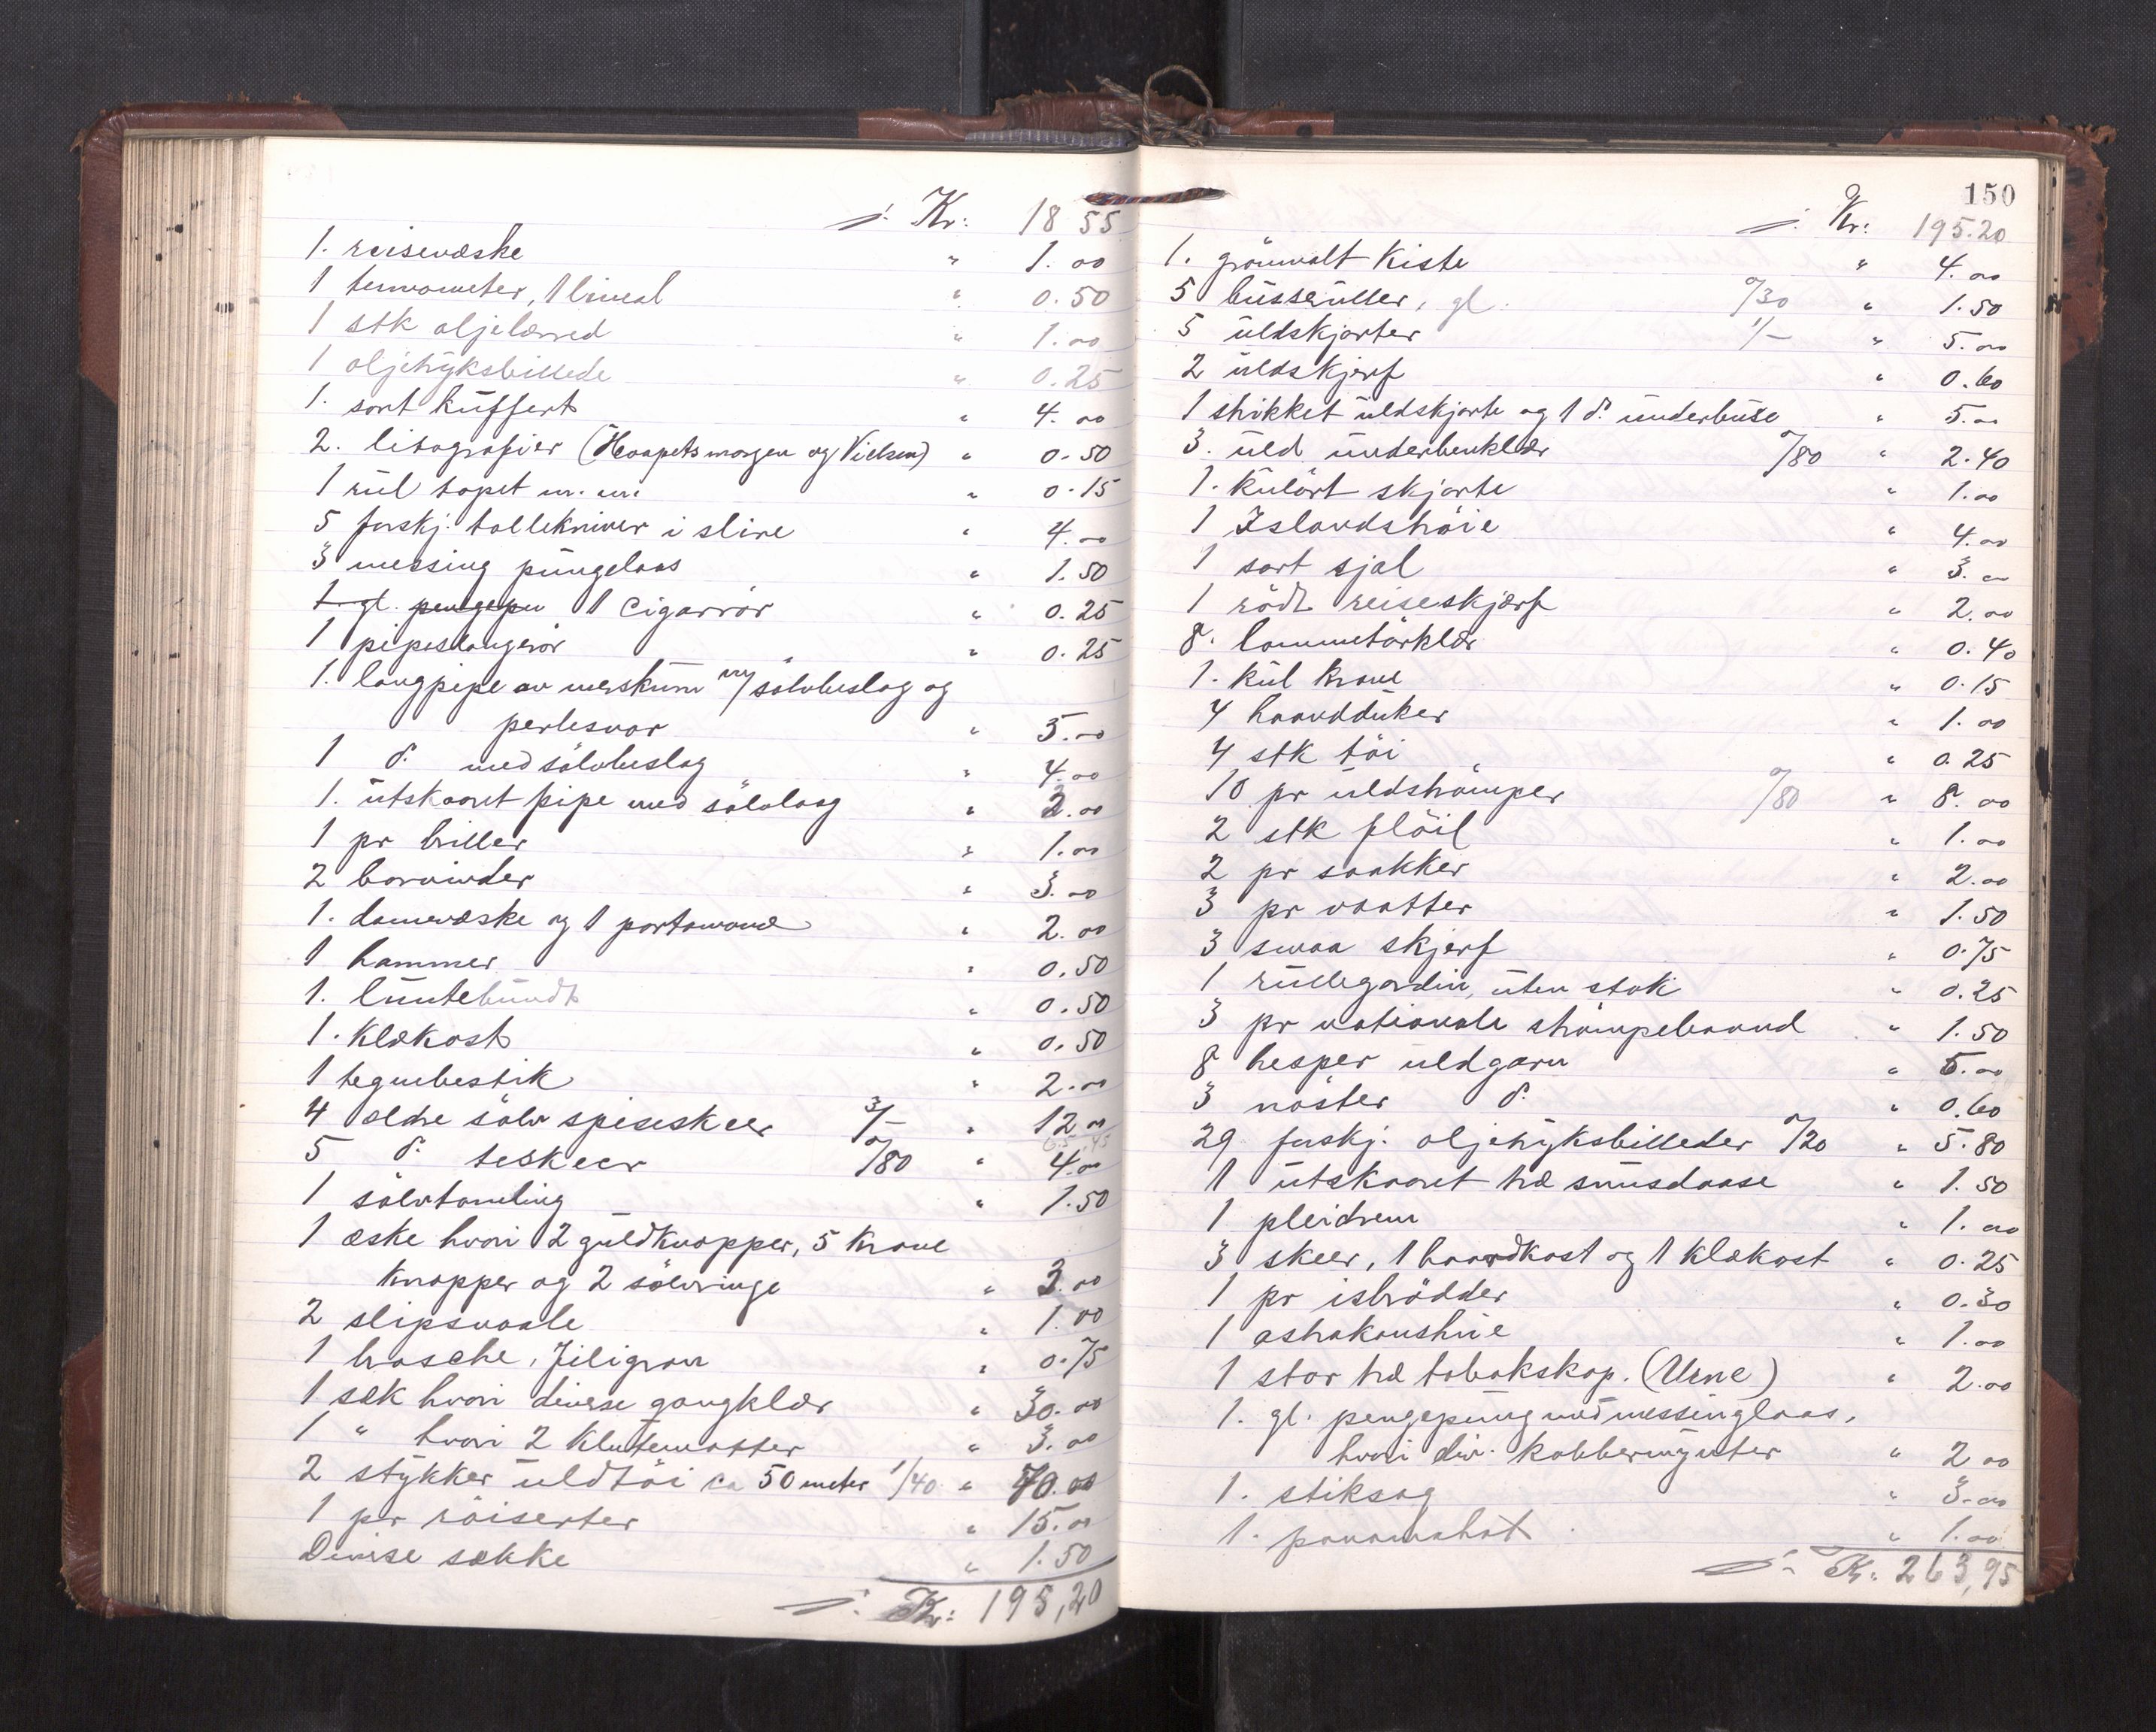 ./. Kr: 18 55
1. reisevæske " 1.00
1 termometer, 1 lineal " 0.50
1 stk oljelærred " 1.00
1 oljetryksbillede " 0.25
1. sort kuffert " 4.00
2. litografier (Haapets morgen og Nielsen) " 0.50
1 rul tapet m.m. " 0.15
5 forskj. tollekniver i slire " 4.00
3 messing pungelaas " 1.50
1 gl. pengepu 1 Cigarrør " 0.25
1 pipeslangerör " 0.25
1. langpipe av merskum m/ sölvbeslag og
perlesnor " 5.00
1 d? med sölvbeslag " 4.00
1. utskaaret pipe med sölvlaag " 2.00
1 pr briller " 1.00
2 borvinder " 3.00
1. damevæske og 1 portomonæ " 2.00
1 hammer " 0.50
1. luntebundt " 0.50
1. Klækost " 0.50
1 tegnebestik " 2.00
4 ældre sölv spiseskeer 3/- " 12.00
5 d? teskeer 0/80 " 4.00
1 sölvtamling " 1.50
1 æske hvori 2 guldknapper, 5 Krave
Knapper og 2 sölvringe " 3.00
2 slipsnaale " 1.00
1 brosche, Filigran " 0.75
1 sæk hvori diverse gangklær " 30.00
1 " hvori 2 Klutematter " 3.00
2 stykker uldtöi ca 50 meter 1/40 " 70.00
1 pr röiserter " 15.00
Diverse sække " 1.50
./. Kr: 195,20
150
./. Kr: 195.20
1. grönmalt Kiste " 4.00
5 busseruller, gl. 0/30 " 1.50
5 uldskjorter 1/- " 5.00
2 uldskjerf " 0.60
1 strikket uldskjorte og 1 d? underbuse " 5.00
3. uld underbenklær 0/80 " 2.40
1. Kulört skjorte " 1.00
1 Islandströie " 4.00
1 sort sjal " 3.00
1 rödt reiseskjærf " 2.00
8. lommetörklær " 0.40
1. Kul Krave " 0.15
4 haandduker " 1.00
4 stk töi " 0.25
10 pr uldströmper 0/80 " 8.00
2 stk plöil " 1.00
2 pr saakker " 2.00
3 pr vaatter " 1.50
3 smaa skjerf " 0.75
1 rullegardin, uten stok " 0.25
3 pr nationale strömpebaand " 1.50
8 hesper uldgarn " 5.00
3 nöster d? " 0.60
29 forskj. oljetryksbilleder 0/20 " 5.80
1 utskaaret træ snusdaase " 1.50
1 pleidrem " 1.00
3 skeer, 1 haandkost og 1 klækost " 0.25
1 pr isbrödder " 0.30
1 astrakanshue " 1.00
1 stor træ tobakskop. (Urne) " 2.00
1. gl. pengepung med messinglaas,
hvori div. kobbermynter " 2 00
1. stiksag " 3.00
1. panamahat " 1.00
./. Kr. 263,95